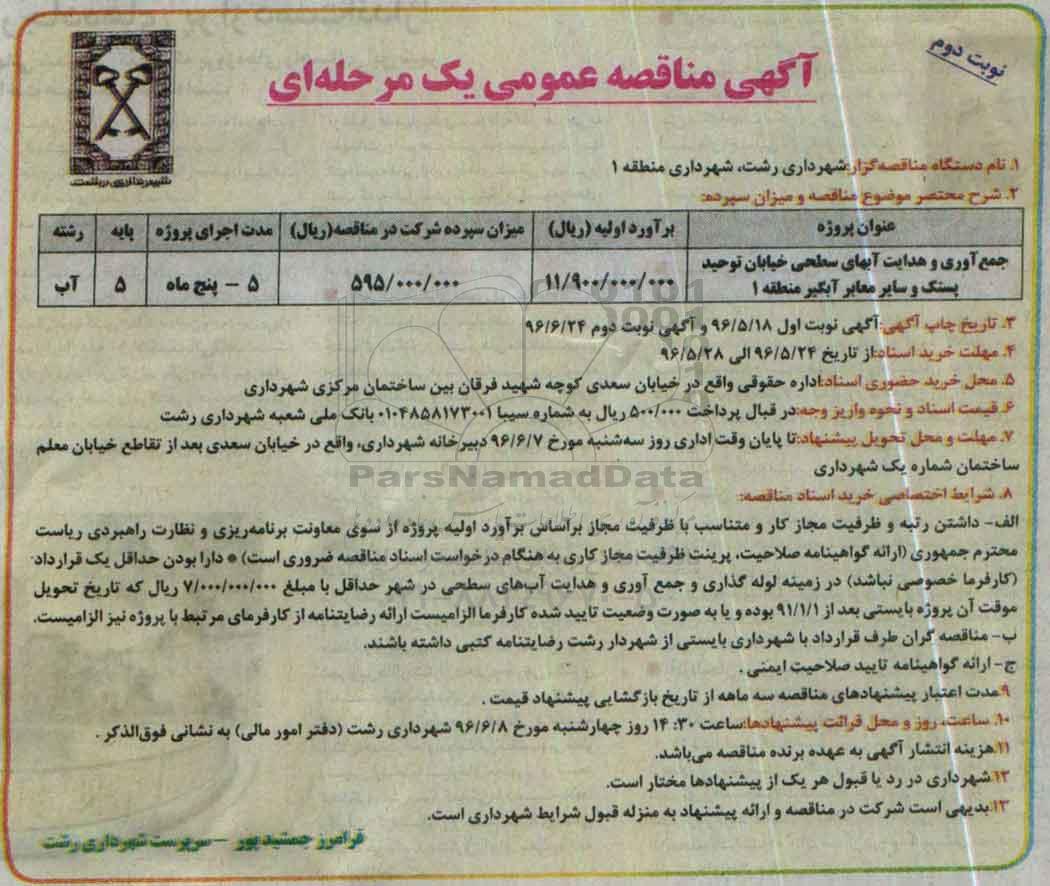 نوبت دوم
آگهی مناقصه عمومی یک مرحله‌ای
شهرداری رشت
۱. نام دستگاه مناقصه‌گزار:شهرداری رشت، شهرداری منطقه ۱
۲. شرح مختصر موضوع مناقصه و میزان سپرده:
عنوان پروژه برآورد اولیه (ریال) میزان سپرده شرکت در مناقصه(ریال) مدت اجرای پروژه پایه رشته
جمع‌آوری و هدایت آبهای سطحی خیابان توحید
پستک و سایر معابر آبگیر منطقه ۱ ۱۱/۹۰۰/۰۰۰/۰۰۰ ۵۹۵/۰۰۰/۰۰۰ ۵ - پنج ماه ۵ آب
۳. تاریخ چاپ آگهی:آگهی نوبت اول ۹۶/۵/۱۸ و آگهی نوبت دوم ۹۶/۶/۲۴
۴. مهلت خرید اسناد:از تاریخ ۹۶/۵/۲۴ الی ۹۶/۵/۲۸
۵. محل خرید حضوری اسناد:اداره حقوقی واقع در خیابان سعدی کوچه شهید فرقان بین ساختمان مرکزی شهرداری
۶. قیمت اسناد و نحوه واریز وجه:در قبال پرداخت ۵۰۰/۰۰۰ ریال به شماره سیبا ۰۱۰۴۸۵۸۱۷۳۰۰۱ بانک ملی شعبه شهرداری رشت
۷. مهلت و محل تحویل پیشنهاد:تا پایان وقت اداری روز سه‌شنبه مورخ ۹۶/۶/۷ دبیرخانه شهرداری، واقع در خیابان سعدی بعد از تقاطع خیابان معلم
ساختمان شماره یک شهرداری
ParsNamadData
۸. شرایط اختصاصی خرید اسناد مناقصه:
الف- داشتن رتبه و ظرفیت مجاز کار و متناسب با ظرفیت مجاز براساس برآورد اولیه پروژه از سوی معاونت برنامه‌ریزی و نظارت راهبردی ریاست
محترم جمهوری (ارائه گواهینامه صلاحیت، پرینت ظرفیت مجاز کاری به هنگام درخواست اسناد مناقصه ضروری است) * دارا بودن حداقل یک قرارداد
(کارفرما خصوصی نباشد) در زمینه لوله گذاری و جمع آوری و هدایت آب‌های سطحی در شهر حداقل با مبلغ ۷/۰۰۰/۰۰۰/۰۰۰ ریال که تاریخ تحویل
موقت آن پروژه بایستی بعد از ۹۱/۱/۱ بوده و یا به صورت وضعیت تایید شده کارفرما الزامیست ارائه رضایتنامه از کارفرمای مرتبط با پروژه نیز الزامیست.
ب- مناقصه گران طرف قرارداد با شهرداری بایستی از شهردار رشت رضایتنامه کتبی داشته باشند.
ج- ارائه گواهینامه تایید صلاحیت ایمنی .
۹.مدت اعتبار پیشنهادهای مناقصه سه ماهه از تاریخ بازگشایی پیشنهاد قیمت .
۱۰. ساعت، روز و محل قرائت پیشنهادها:ساعت ۱۴:۳۰ روز چهارشنبه مورخ ۹۶/۶/۸ شهرداری رشت (دفتر امور مالی) به نشانی فوق‌الذکر .
۱۱.هزینه انتشار آگهی به عهده برنده مناقصه می‌باشد.
۱۲.شهرداری در رد یا قبول هر یک از پیشنهادها مختار است.
۱۳.بدیهی است شرکت در مناقصه و ارائه پیشنهاد به منزله قبول شرایط شهرداری است.
فرامرز جمشیدپور - سرپرست شهرداری رشت